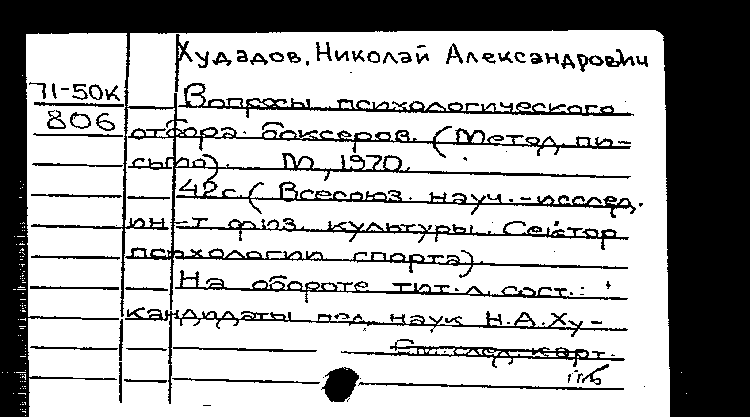 Худадов, Николай Александрович
71-50к
806
Вопросы психологического
отбора боксеров. (Метод. пи-
сьмо). М., 1970.
42с. (Всесоюз. науч.-исслед.
ин-т физ. культуры. Сектор
психологии спорта).
На обороте тит. л. сост.:
кандидаты пед. наук Н.А.Ху-
См. след. карт.